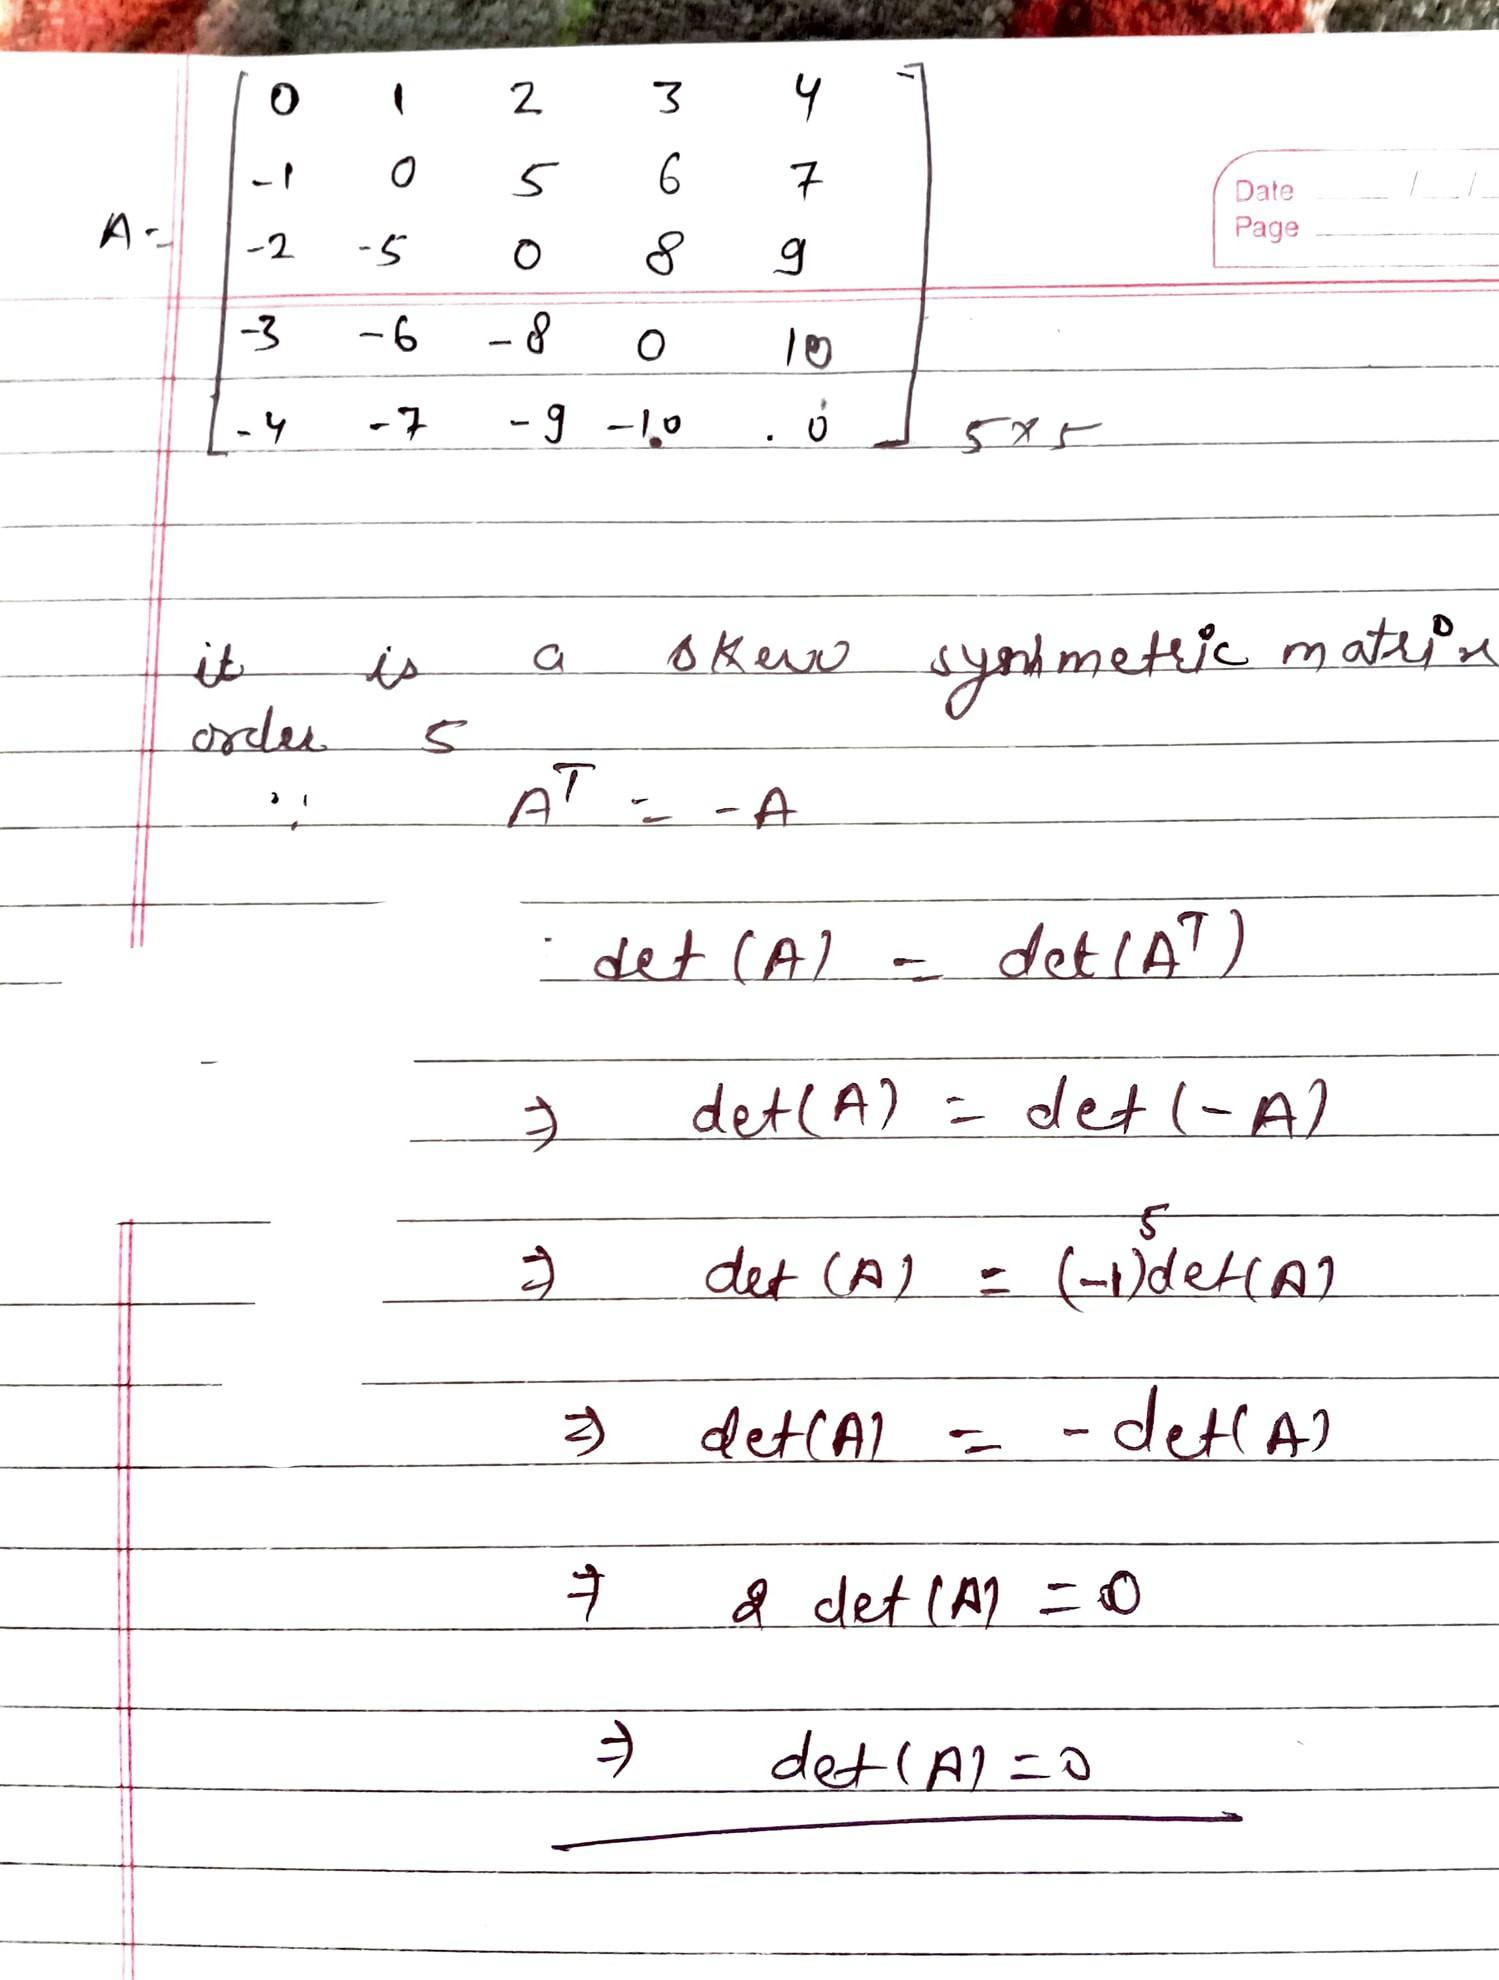 0 1 2 3 4
-1 0 5 6 7
Date / /
A = -2 -5 0 8 9
Page
-3 -6 -8 0 10
-4 -7 -9 -10 0 5×5
it is a skew symmetric matrix
order 5
∵ Aᵀ = -A
det (A) = det(Aᵀ)
⇒ det(A) = det(-A)
⇒ det (A) = (-1)⁵det(A)
⇒ det(A) = - det(A)
⇒ 2 det(A) = 0
⇒ det(A) = 0